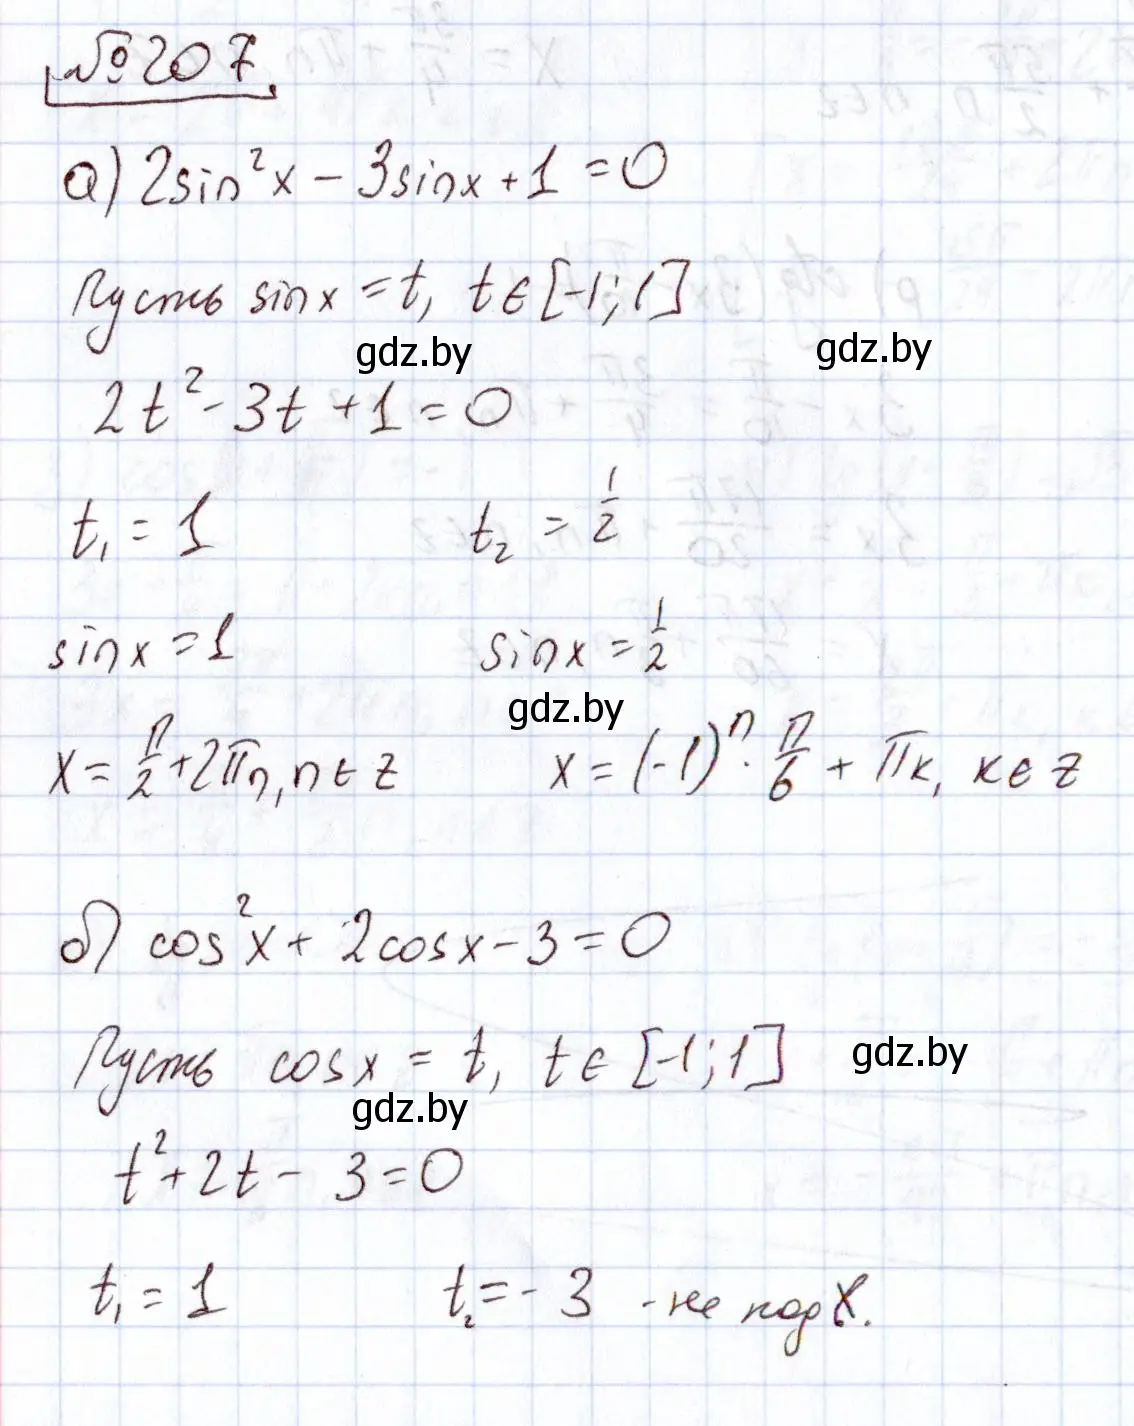 №207
а) 2sin²x - 3sinx + 1 = 0
Пусть sinx = t, t∈[-1;1]
gdz.by gdz.by
2t² - 3t + 1 = 0
t₁ = 1 t₂ = 1/2
sinx = 1 sinx = 1/2
gdz.by
x = π/2 + 2πn, n∈z x = (-1)ⁿ · π/6 + πk, k∈z
б) cos²x + 2cosx - 3 = 0
Пусть cosx = t, t∈[-1;1] gdz.by
gdz.by
t² + 2t - 3 = 0
t₁ = 1 t₂ = -3 - не подх.